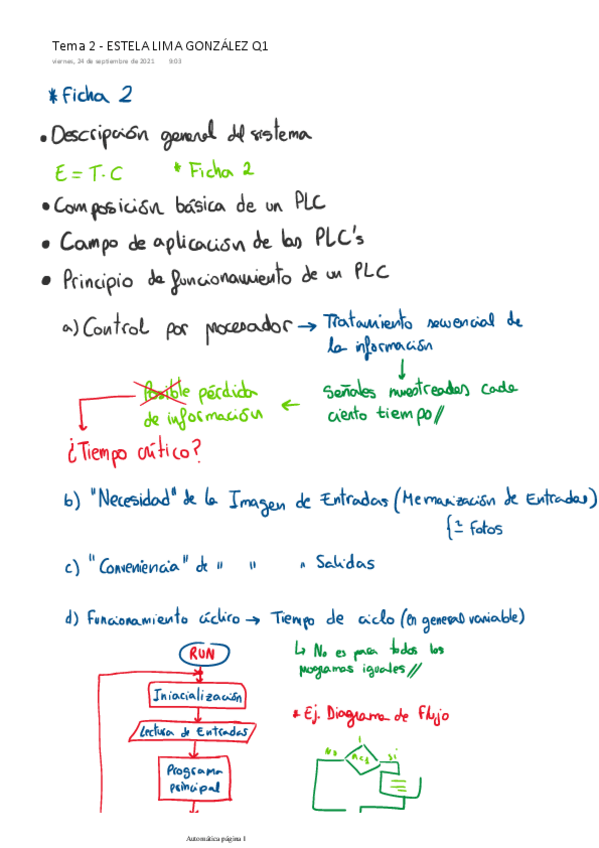 Tema 2 - ESTELA LIMA GONZÁLEZ Q1
viernes, 24 de septiembre de 2021 9:03
* Ficha 2
• Descripción general del sistema
E = T · C * Ficha 2
• Composición básica de un PLC
• Campo de aplicación de los PLC's
• Principio de funcionamiento de un PLC
a) Control por procesador → Tratamiento secuencial de
la información
↓
Señales muestreadas cada
cierto tiempo //
← Posible pérdida
de información
¿Tiempo crítico?
b) "Necesidad" de la Imagen de Entradas (Memorización de Entradas)
Fotos
c) "Conveniencia" de " " " Salidas
d) Funcionamiento cíclico → Tiempo de ciclo (en general variable)
↳ No es para todos los
programas iguales //
RUN
Iniacialización
Lectura de Entradas
Programa
principal
* Ej. Diagrama de Flujo
No
Si
Automática página 1